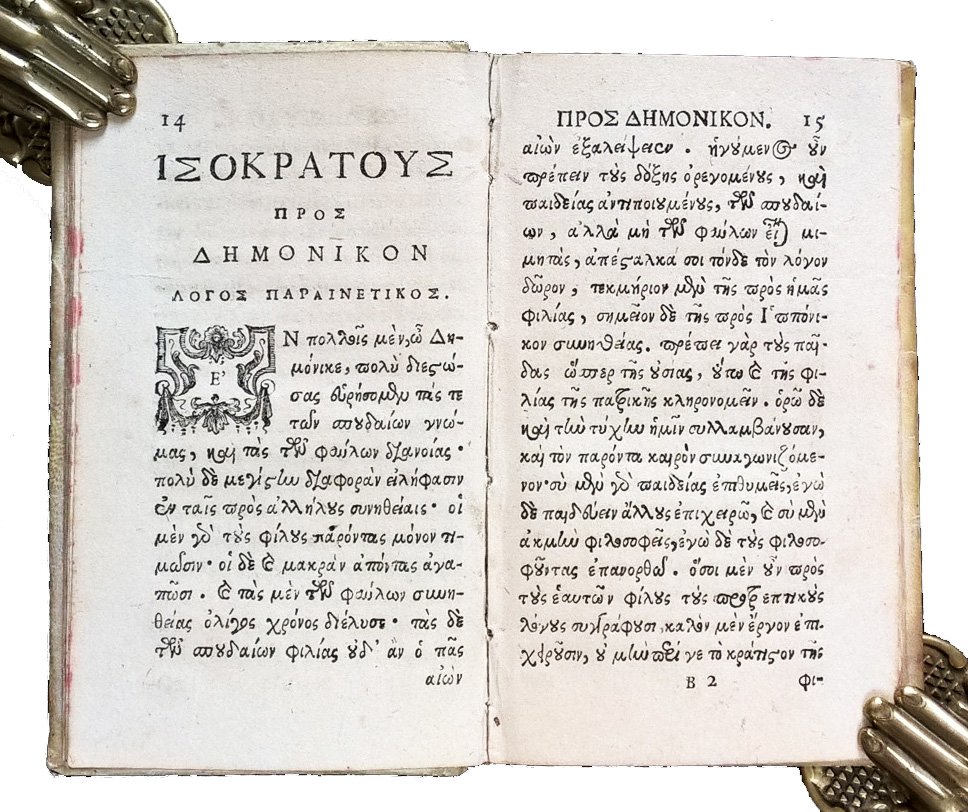 14
ΙΣΟΚΡΑΤΟΥΣ
ΠΡΟΣ
ΔΗΜΟΝΙΚΟΝ
ΛΟΓΟΣ ΠΑΡΑΙΝΕΤΙΚΟΣ.
Ε᾿Ν πολλοῖς μὲν, ὦ Δη-
μόνικε, πολὺ διεστώ-
σας εὑρήσομεν τάς τε
τῶν σπουδαίων γνώ-
μας, καὶ τὰς τῶν φαύλων διανοίας·
πολὺ δὲ μεγίστην διαφορὰν εἰλήφασιν
ἐν ταῖς πρὸς ἀλλήλους συνηθείαις· οἱ
μὲν γὸ τοὺς φίλους παρόντας μόνον τι-
μῶσιν· οἱ δὲ καὶ μακρὰν ἀπόντας ἀγα-
πῶσι. καὶ τὰς μὲν τῶν φαύλων συνη-
θείας ὀλίγος χρόνος διέλυσε· τὰς δὲ
τῶν σπουδαίων φιλίας οὐδ᾿ ἂν ὁ πᾶς
αἰὼν
ΠΡΟΣ ΔΗΜΟΝΙΚΟΝ. 15
αἰὼν ἐξαλείψειεν. ἡγούμενος οὖν
πρέπειν τοὺς δόξης ὀρεγομένους, καὶ
παιδείας ἀντιποιουμένους, τῶν σπουδαί-
ων, ἀλλὰ μὴ τῶν φαύλων εἶναι μι-
μητὰς, ἀπέσταλκά σοι τόνδε τὸν λόγον
δῶρον, τεκμήριον μὲν τῆς πρὸς ἡμᾶς
φιλίας, σημεῖον δὲ τῆς πρὸς Ἱππόνι-
κον συνηθείας. πρέπει γὰρ τοὺς παῖ-
δας ὥσπερ τῆς οὐσίας, οὕτω καὶ τῆς φι-
λίας τῆς πατρικῆς κληρονομεῖν. ὁρῶ δὲ
καὶ τὴν τύχην ἡμῖν συλλαμβάνουσαν,
καὶ τὸν παρόντα καιρὸν συναγωνιζόμε-
νον· σὺ μὲν γὸ παιδείας ἐπιθυμεῖς, ἐγὼ
δὲ παιδεύειν ἄλλους ἐπιχειρῶ, καὶ σὺ μὲν
ἀκμὴν φιλοσοφεῖς, ἐγὼ δὲ τοὺς φιλοσο-
φοῦντας ἐπανορθῶ. ὅσοι μὲν οὖν πρὸς
τοὺς ἑαυτῶν φίλους τοὺς προτρεπτικοὺς
λόγους συγγράφουσι, καλὸν μὲν ἔργον ἐπι-
χειροῦσιν, οὐ μὴν περί γε τὸ κράτιστον τῆς
B 2 φι-